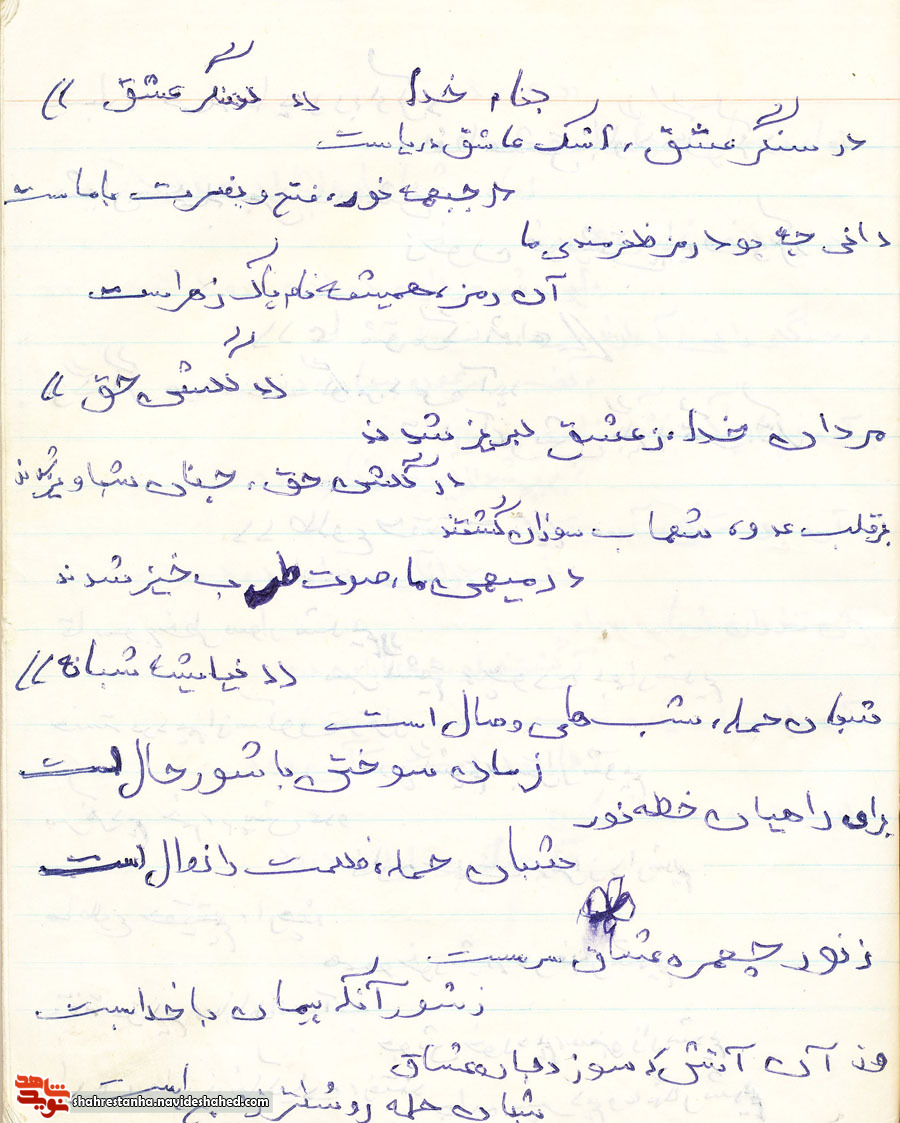 بنام خدا (( سنگر عشق ))
در سنگر عشق، اشک عاشق دریاست
در جبهه نور، فتح و نصرت با ماست
دانی چه بود رمز ظفرمندی ما
آن رمز، همیشه نام پاک زهراست
(( گلشن حق ))
مردان خدا، ز عشق لبریز شدند
در گلشن حق، چنان شباویز شدند
بر قلب عدو، شهاب سوزان گشتند
در میهن ما، صوت طرب خیز شدند
(( نیایش شبانه ))
شبهای حمله، شب های وصال است
زمان سوختن با شور حال است
برای راهیان خطه نور
شبهای حمله، ظلمت را زوال است
ز نور چهره عشاق سرمست
ز شور آنکه پیمان با خدا بست
آن آتش که سوزد جان عشاق
شبهای حمله روشنتر است
شاهد
نوید
shahrestanha.navideshahed.com